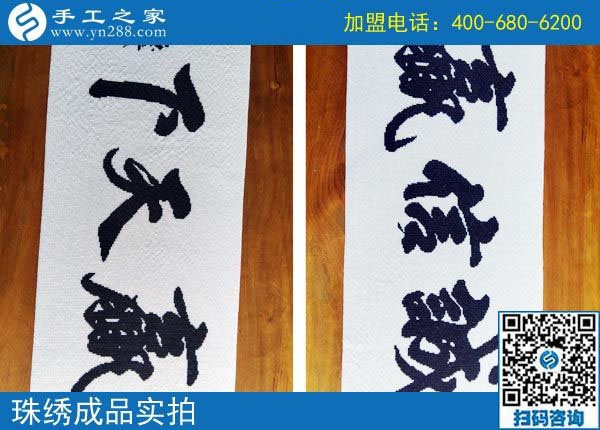 手工之家
www.yn288.com
加盟电话：400-680-6200
下天贏
贏信誠
珠绣成品实拍
扫码咨询